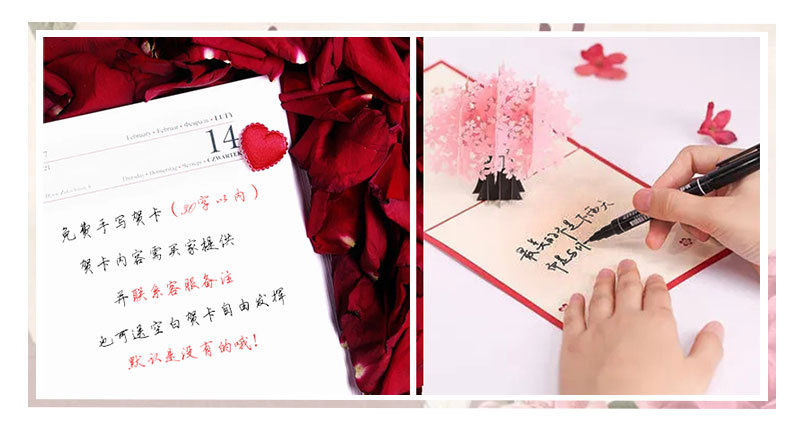 February • Februar • Февраль • LUTY
14
CZWARTEK
免费手写贺卡（30字以内）
贺卡内容需买家提供
并联系客服备注
也可送空白贺卡自由发挥
默认是没有的哦！
最美的不是下雨天